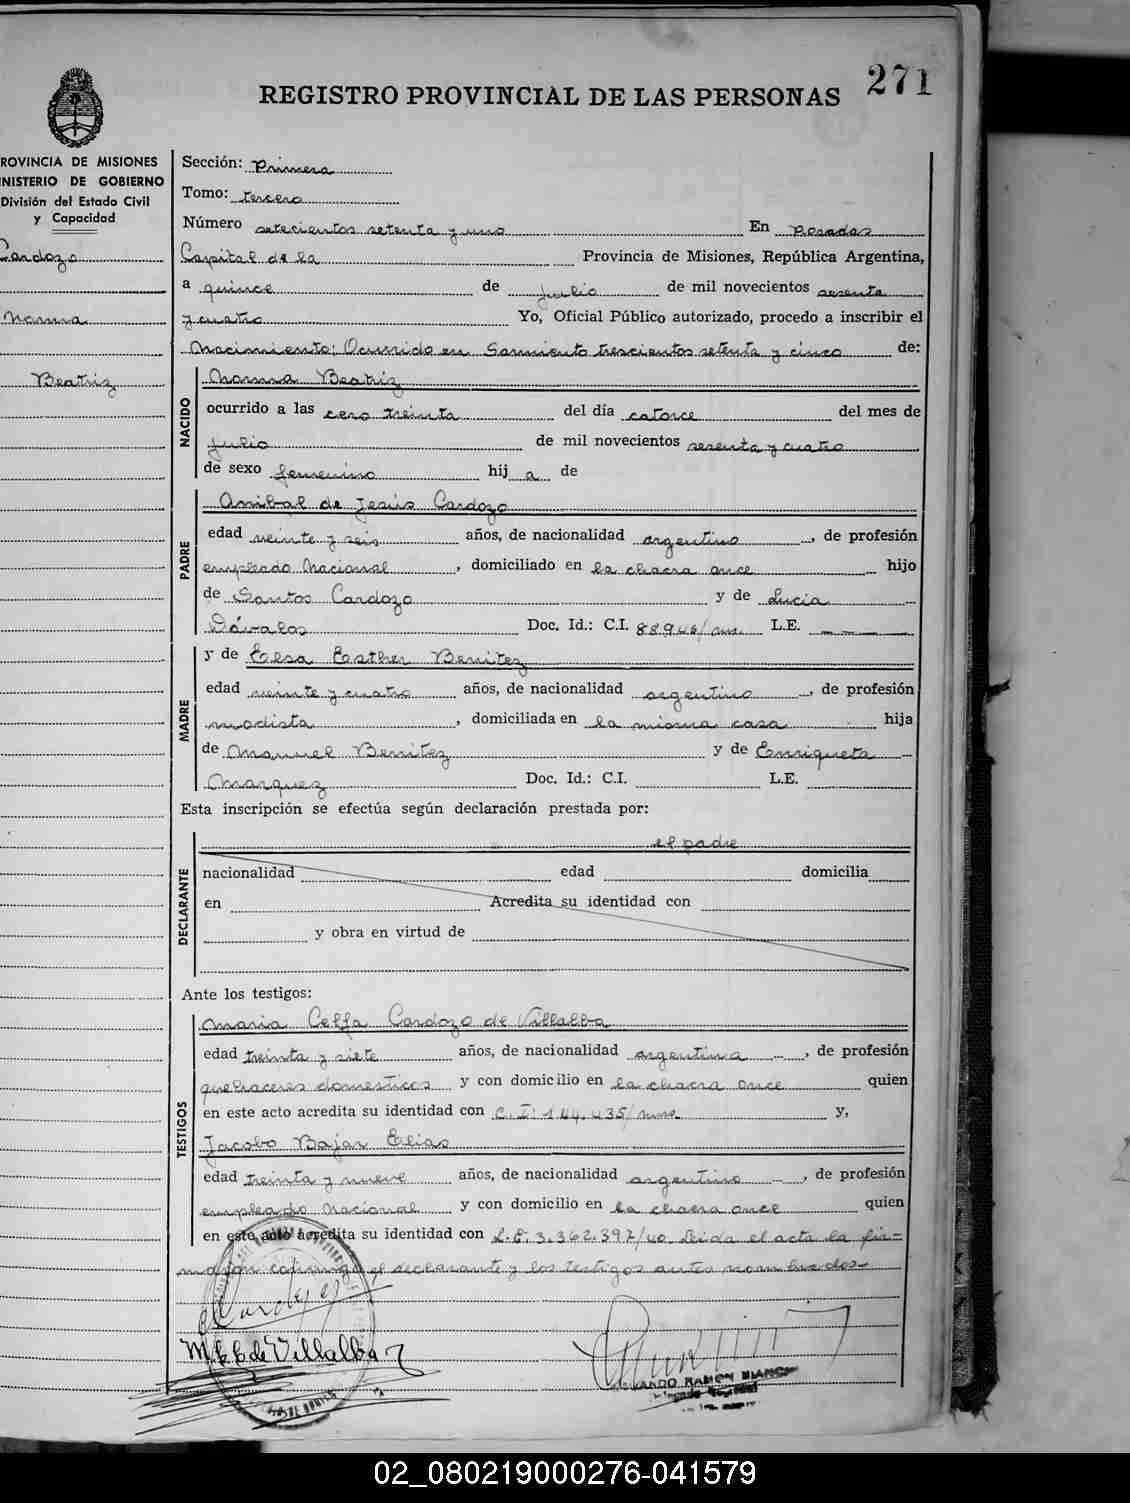 271
REGISTRO PROVINCIAL DE LAS PERSONAS
ROVINCIA DE MISIONES
NISTERIO DE GOBIERNO
División del Estado Civil
y Capacidad
Cardozo
Norma
Beatriz
Sección: Primera
Tomo: tercero
Número setecientos setenta y uno En Posadas
Capital de la Provincia de Misiones, República Argentina,
a quince de Julio de mil novecientos sesenta
y cuatro Yo, Oficial Público autorizado, procedo a inscribir el
Nacimiento: Ocurrido en Sarmiento trescientos setenta y cinco de:
NACIDO
Norma Beatriz
ocurrido a las cero treinta del día catorce del mes de
Julio de mil novecientos sesenta y cuatro
de sexo femenino hij a de
PADRE
Anibal de Jesús Cardozo
edad veinte y seis años, de nacionalidad argentino, de profesión
empleado Nacional, domiciliado en la chacra once hijo
de Santos Cardozo y de Lucia
Dávalos Doc. Id.: C.I. 88946/ms. L.E. — — —
MADRE
y de Elsa Esther Benitez
edad veinte y cuatro años, de nacionalidad argentino, de profesión
modista, domiciliada en la misma casa hija
de Manuel Benitez y de Enriqueta
Marquez Doc. Id.: C.I. L.E.
Esta inscripción se efectúa según declaración prestada por:
DECLARANTE
el padre
nacionalidad edad domicilia
en Acredita su identidad con
y obra en virtud de
Ante los testigos:
TESTIGOS
Maria Celfa Cardozo de Villalba
edad treinta y siete años, de nacionalidad argentina, de profesión
quehaceres domesticos y con domicilio en la chacra once quien
en este acto acredita su identidad con C.I: 144.435/mns. y,
Jacobo Bajar Elias
edad treinta y nueve años, de nacionalidad argentino, de profesión
empleado Nacional y con domicilio en la chacra once quien
en este acto acredita su identidad con L.E. 3.362.397/40. Leida el acta la fir=
man conmigo el declarante y los testigos antes nombrados-
M. C. C. de Villalba
RAMON
02_080219000276-041579